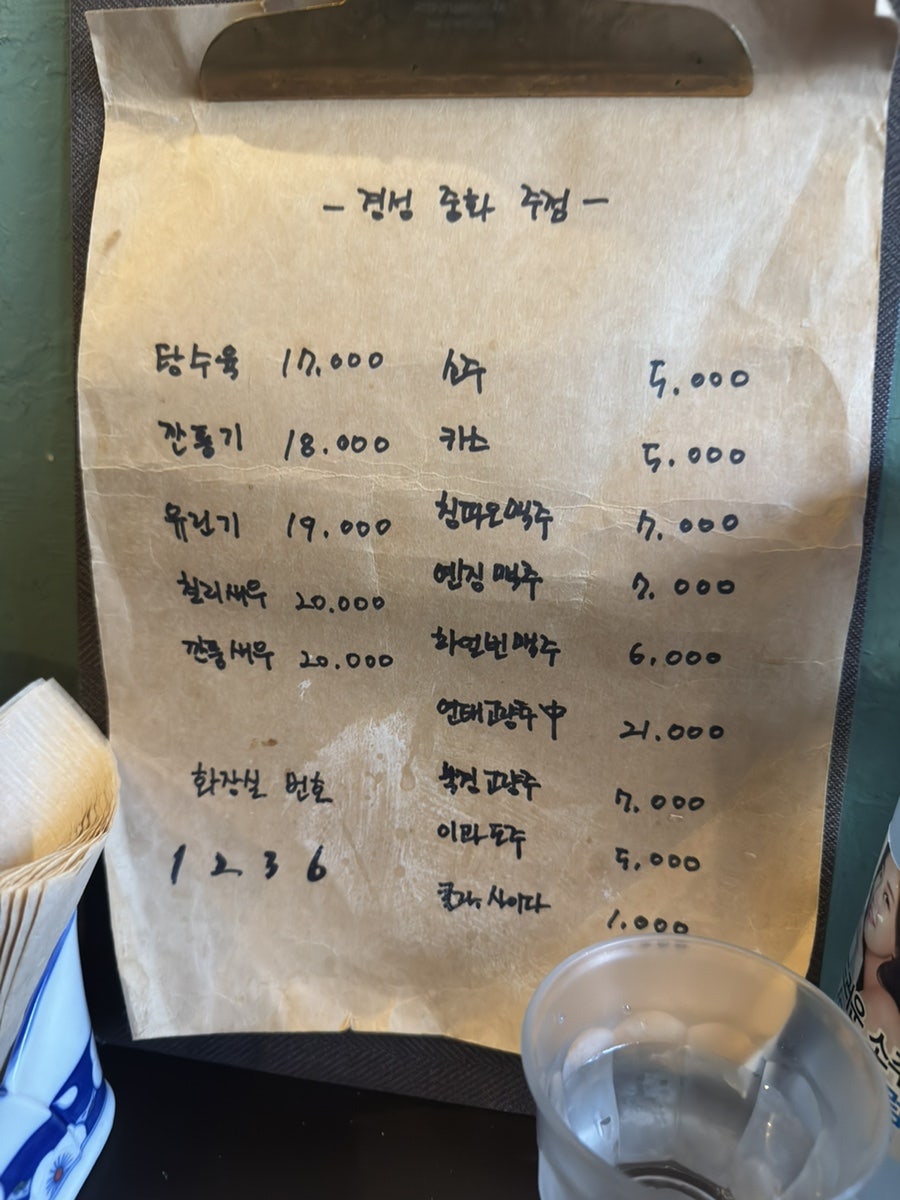 - 경성 중화 주점 -
탕수육 17.000
깐풍기 18.000
유린기 19.000
칠리새우 20.000
깐풍새우 20.000
화장실 번호
1 2 3 6
소주 5.000
카스 5.000
칭따오맥주 7.000
옌징맥주 7.000
하얼빈맥주 6.000
연태고량주 中 21.000
북경고량주 7.000
이과두주 5,000
콜라, 사이다 1.000
소주